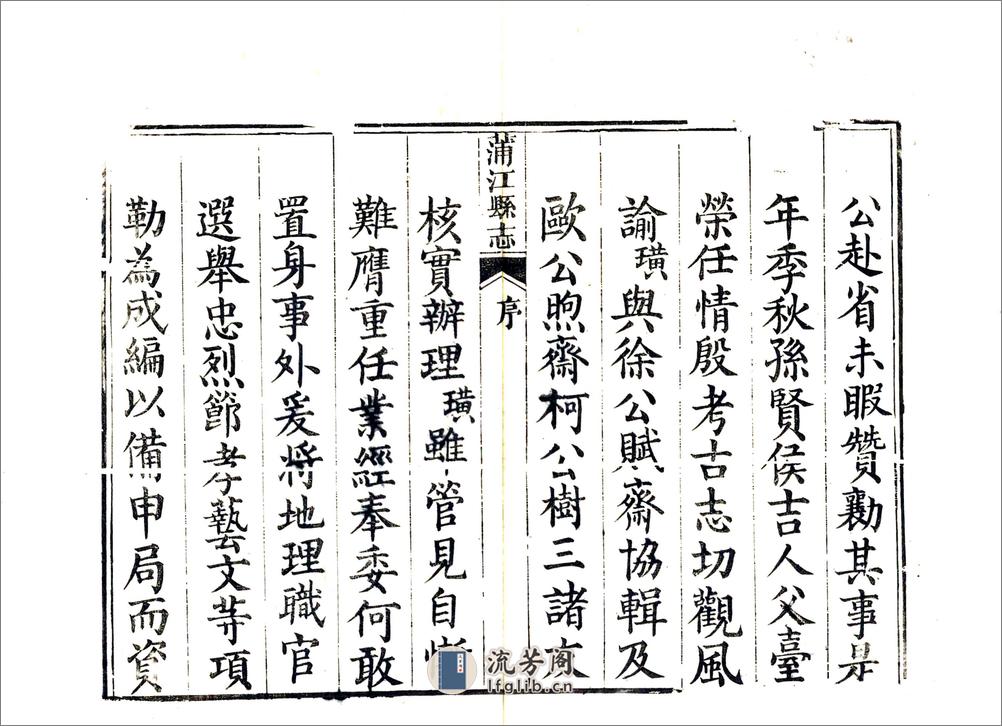 公赴省未暇贊勷其事是
年季秋孫賢侯吉人父臺
榮任情殷考古志切觀風
諭璜與徐公賦齋協輯及
歐公煦齋柯公樹三諸友
蒲江縣志
序
核實辦理璜雖管見自慚
難膺重任業經奉委何敢
置身事外爰將地理職官
選舉忠烈節孝藝文等項
勒為成編以備申局而資
流芳阁
lfglib.cn